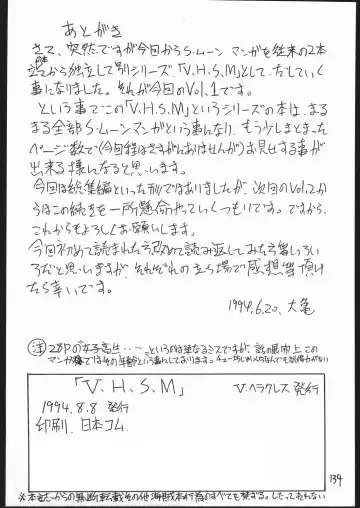 あとがき
さて、突然ですが今回からS・ムーンマンガを従来の2本
立てから独立して別シリーズ、「V.H.S.M」として、だしていく
事になりました。それが今回のVol.1です。
という事でこの「V.H.S.M」というシリーズの本は、まる
まる全部S・ムーンマンガという事になり、もう少しまとまった
ページ数で(今回程はさすがにありませんが)お見せする事が
出来る様になると思います。
今回は総集編といった形ではありましたが、次回のVol.2か
らはこの続きを一所懸命やっていくつもりです。ですから、
これからもよろしくお願いします。
今回初めて読まれた方、改めて読み返してみた方等いろい
ろだと思いますが、それぞれの立ち場で感想等頂け
たら幸いです。
1994.6.20. 大亀
注 28Pの女子高生……というのは単なるミスですが、話の展開上この
マンガではその年齢という事にしております。
「V.H.S.M」
V.ヘラクレス発行
1994.8.8 発行
印刷. 日本コム.
134
※本誌からの無断転載、その他海賊版行為のすべてを禁ずる。